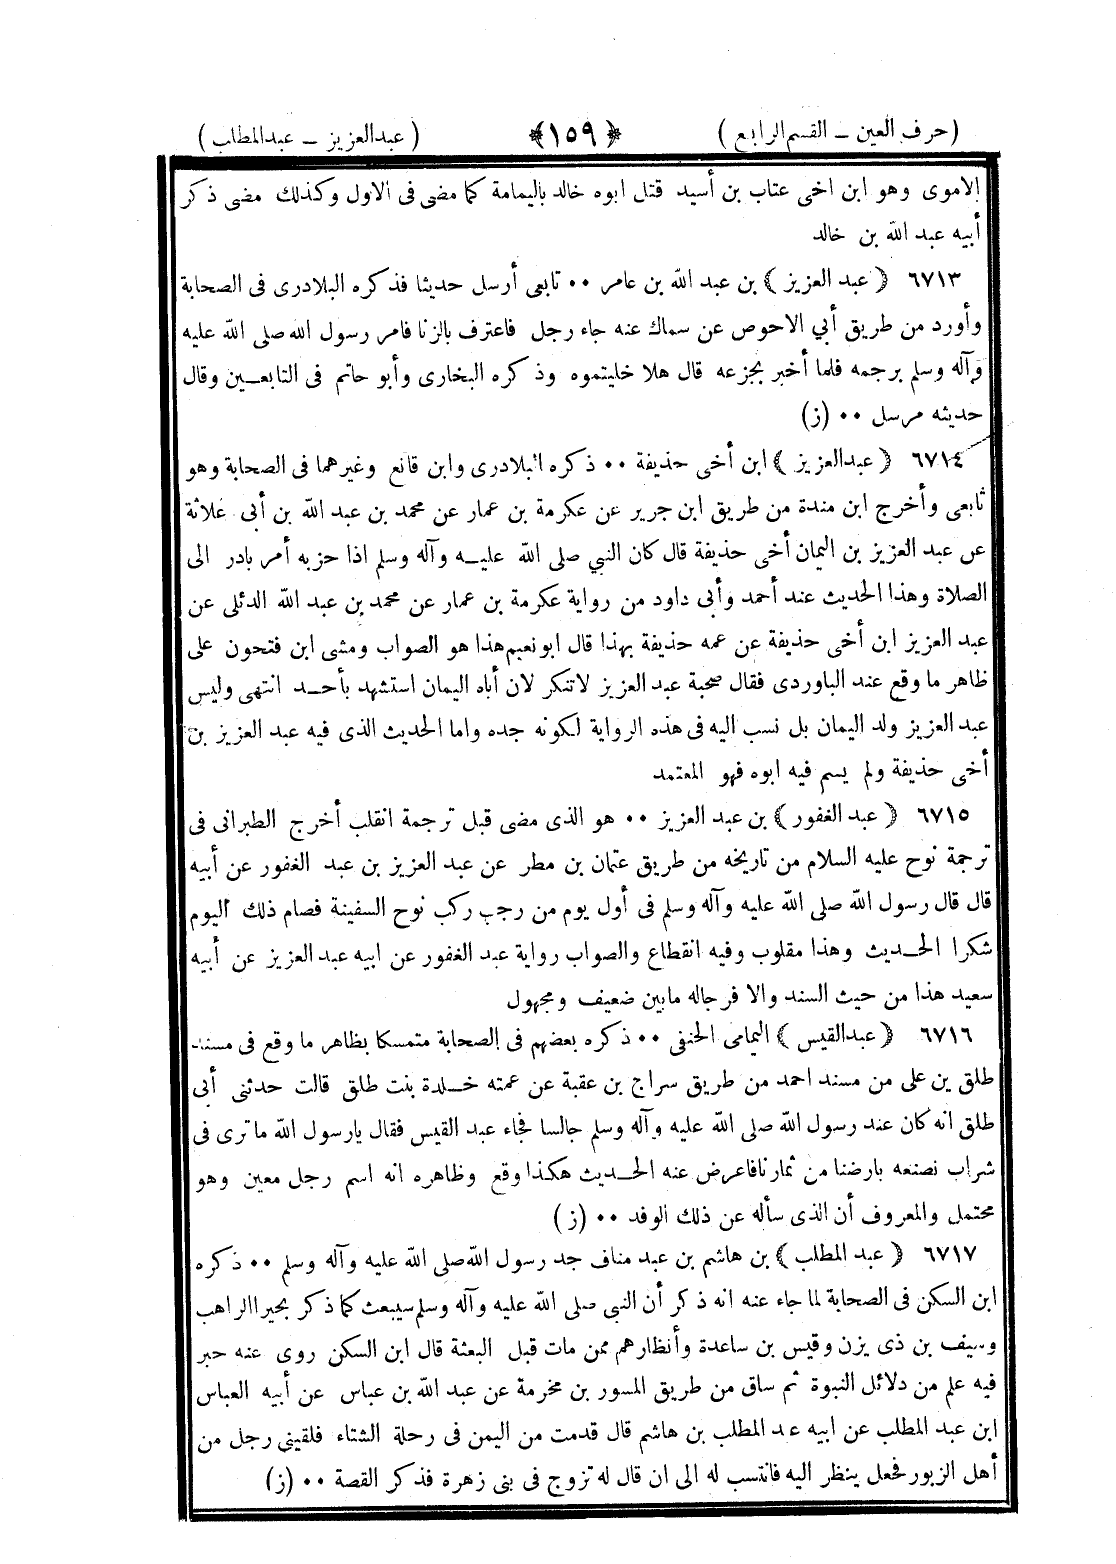 ( حرف العين – القسم الرابع ) ﴿ ١٥٩ ﴾ ( عبدالعزيز – عبدالمطلب )
الاموى وهو ابن اخى عتاب بن أسيد قتل ابوه خالد باليمامة كما مضى فى الاول وكذلك مضى ذكر
أبيه عبد الله بن خالد
٦٧١٣ ﴿ عبد العزيز ﴾ بن عبد الله بن عامر ٠٠ تابعى أرسل حديثا فذكره البلادرى فى الصحابة
وأورد من طريق أبي الاحوص عن سماك عنه جاء رجل فاعترف بالزنا فامر رسول الله صلى الله عليه
وآله وسلم برجمه فلما أخبر بجزعه قال هلا خليتموه وذكره البخارى وأبو حاتم فى التابعين وقال
حديثه مرسل ٠٠ (ز)
٦٧١٤ ﴿ عبدالعزيز ﴾ ابن أخى حذيفة ٠٠ ذكره البلادرى وابن قانع وغيرهما فى الصحابة وهو
تابعى وأخرج ابن مندة من طريق ابن جرير عن عكرمة بن عمار عن محمد بن عبد الله بن أبى علاثة
عن عبد العزيز بن اليمان أخى حذيفة قال كان النبي صلى الله عليه وآله وسلم اذا حزبه أمر بادر الى
الصلاة وهذا الحديث عند أحمد وأبى داود من رواية عكرمة بن عمار عن محمد بن عبد الله الدئلى عن
عبد العزيز ابن أخى حذيفة عن عمه حذيفة بهذا قال ابونعيم هذا هو الصواب ومشى ابن فتحون على
ظاهر ما وقع عند الباوردى فقال صحبة عبد العزيز لاتنكر لان أباه اليمان استشهد بأحد انتهى وليس
عبد العزيز ولد اليمان بل نسب اليه فى هذه الرواية لكونه جده واما الحديث الذى فيه عبد العزيز بن
أخى حذيفة ولم يسم فيه ابوه فهو المعتمد
٦٧١٥ ﴿ عبد الغفور ﴾ بن عبد العزيز ٠٠ هو الذى مضى قبل ترجمة انقلب أخرج الطبرانى فى
ترجمة نوح عليه السلام من تاريخه من طريق عثمان بن مطر عن عبد العزيز بن عبد الغفور عن أبيه
قال قال رسول الله صلى الله عليه وآله وسلم فى أول يوم من رجب ركب نوح السفينة فصام ذلك اليوم
شكرا الحديث وهذا مقلوب وفيه انقطاع والصواب رواية عبد الغفور عن ابيه عبد العزيز عن أبيه
سعيد هذا من حيث السند والا فرجاله مابين ضعيف ومجهول
٦٧١٦ ﴿ عبدالقيس ﴾ اليمامى الحنفى ٠٠ ذكره بعضهم فى الصحابة متمسكا بظاهر ما وقع فى مسند
طلق بن على من مسند احمد من طريق سراج بن عقبة عن عمته خلدة بنت طلق قالت حدثنى أبى
طلق انه كان عند رسول الله صلى الله عليه وآله وسلم جالسا فجاء عبد القيس فقال يارسول الله ماترى فى
شراب نصنعه بارضنا من ثمارنا فاعرض عنه الحديث هكذا وقع وظاهره انه اسم رجل معين وهو
محتمل والمعروف أن الذى سأله عن ذلك الوفد ٠٠ (ز)
٦٧١٧ ﴿ عبد المطلب ﴾ بن هاشم بن عبد مناف جد رسول الله صلى الله عليه وآله وسلم ٠٠ ذكره
ابن السكن فى الصحابة لما جاء عنه انه ذكر أن النبي صلى الله عليه وآله وسلم سيبعث كما ذكر بحيرا الراهب
وسيف بن ذى يزن وقيس بن ساعدة وأنظارهم ممن مات قبل البعثة قال ابن السكن روى عنه حبر
فيه علم من دلائل النبوة ثم ساق من طريق المسور بن مخرمة عن عبد الله بن عباس عن أبيه العباس
ابن عبد المطلب عن ابيه عبد المطلب بن هاشم قال قدمت من اليمن فى رحلة الشتاء فلقينى رجل من
أهل الزبور فجعل ينظر اليه فانتسب له الى ان قال له تزوج فى بنى زهرة فذكر القصة ٠٠ (ز)